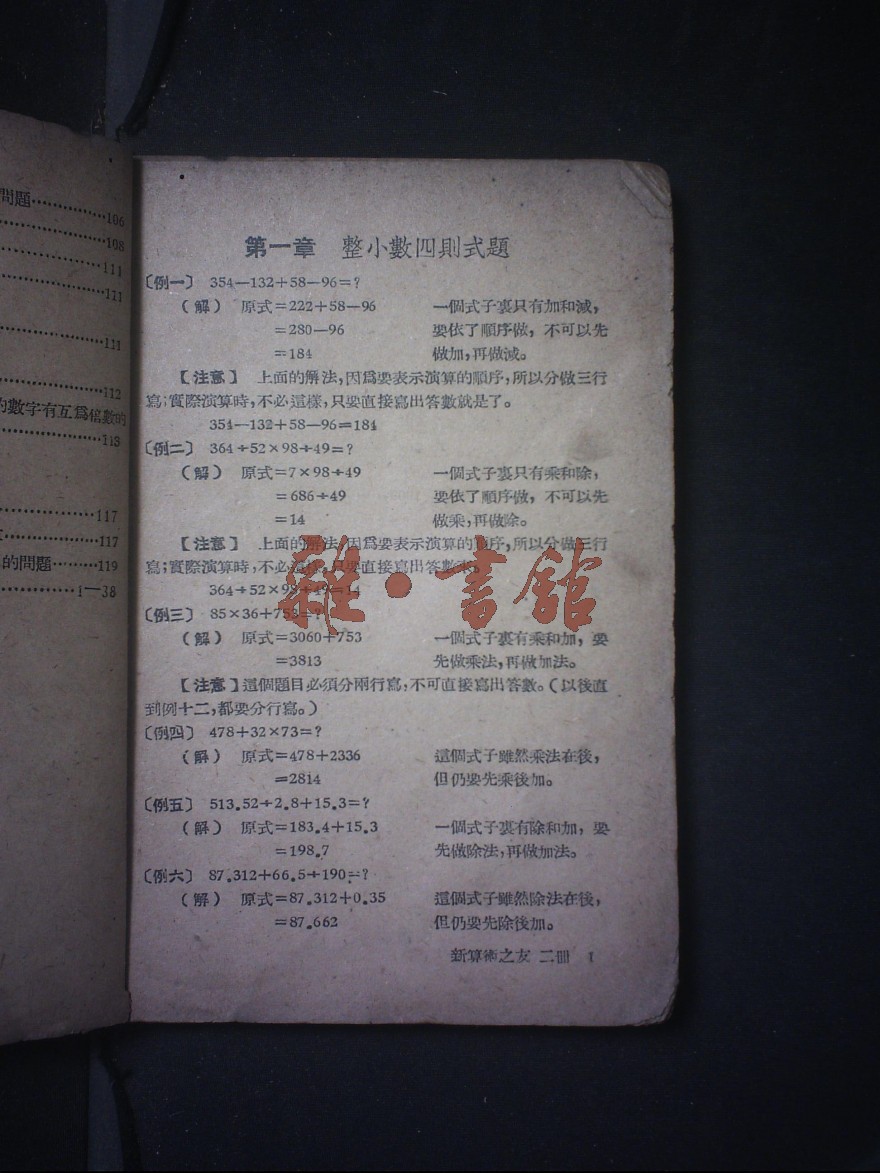 問題……………106
………………108
………………111
………………111
………………111
………………112
的數字有互爲倍數的
………………113
………………117
………………117
的問題………119
………………i—38
第一章 整小數四則式題
〔例一〕 354—132+58—96=?
(解) 原式=222+58—96 一個式子裏只有加和減,
=280—96 要依了順序做, 不可以先
=184 做加,再做減。
【注意】 上面的解法,因爲要表示演算的順序,所以分做三行
寫;實際演算時,不必這樣,只要直接寫出答數就是了。
354—132+58—96=184
〔例二〕 364÷52×98÷49=?
(解) 原式=7×98÷49 一個式子裏只有乘和除,
=686÷49 要依了順序做, 不可以先
=14 做乘,再做除。
【注意】 上面的解法,因爲要表示演算的順序,所以分做三行
寫;實際演算時,不必這樣,只要直接寫出答數來。
364÷52×98÷49=14
雜·書館
〔例三〕 85×36+753=?
(解) 原式=3060+753 一個式子裏有乘和加, 要
=3813 先做乘法,再做加法。
【注意】這個題目必須分兩行寫,不可直接寫出答數。(以後直
到例十二,都要分行寫。)
〔例四〕 478+32×73=?
(解) 原式=478+2336 這個式子雖然乘法在後,
=2814 但仍要先乘後加。
〔例五〕 513.52÷2.8+15.3=?
(解) 原式=183.4+15.3 一個式子裏有除和加, 要
=198.7 先做除法,再做加法。
〔例六〕 87.312+66.5÷190=?
(解) 原式=87.312+0.35 這個式子雖然除法在後,
=87.662 但仍要先除後加。
新算術之友 二冊 1